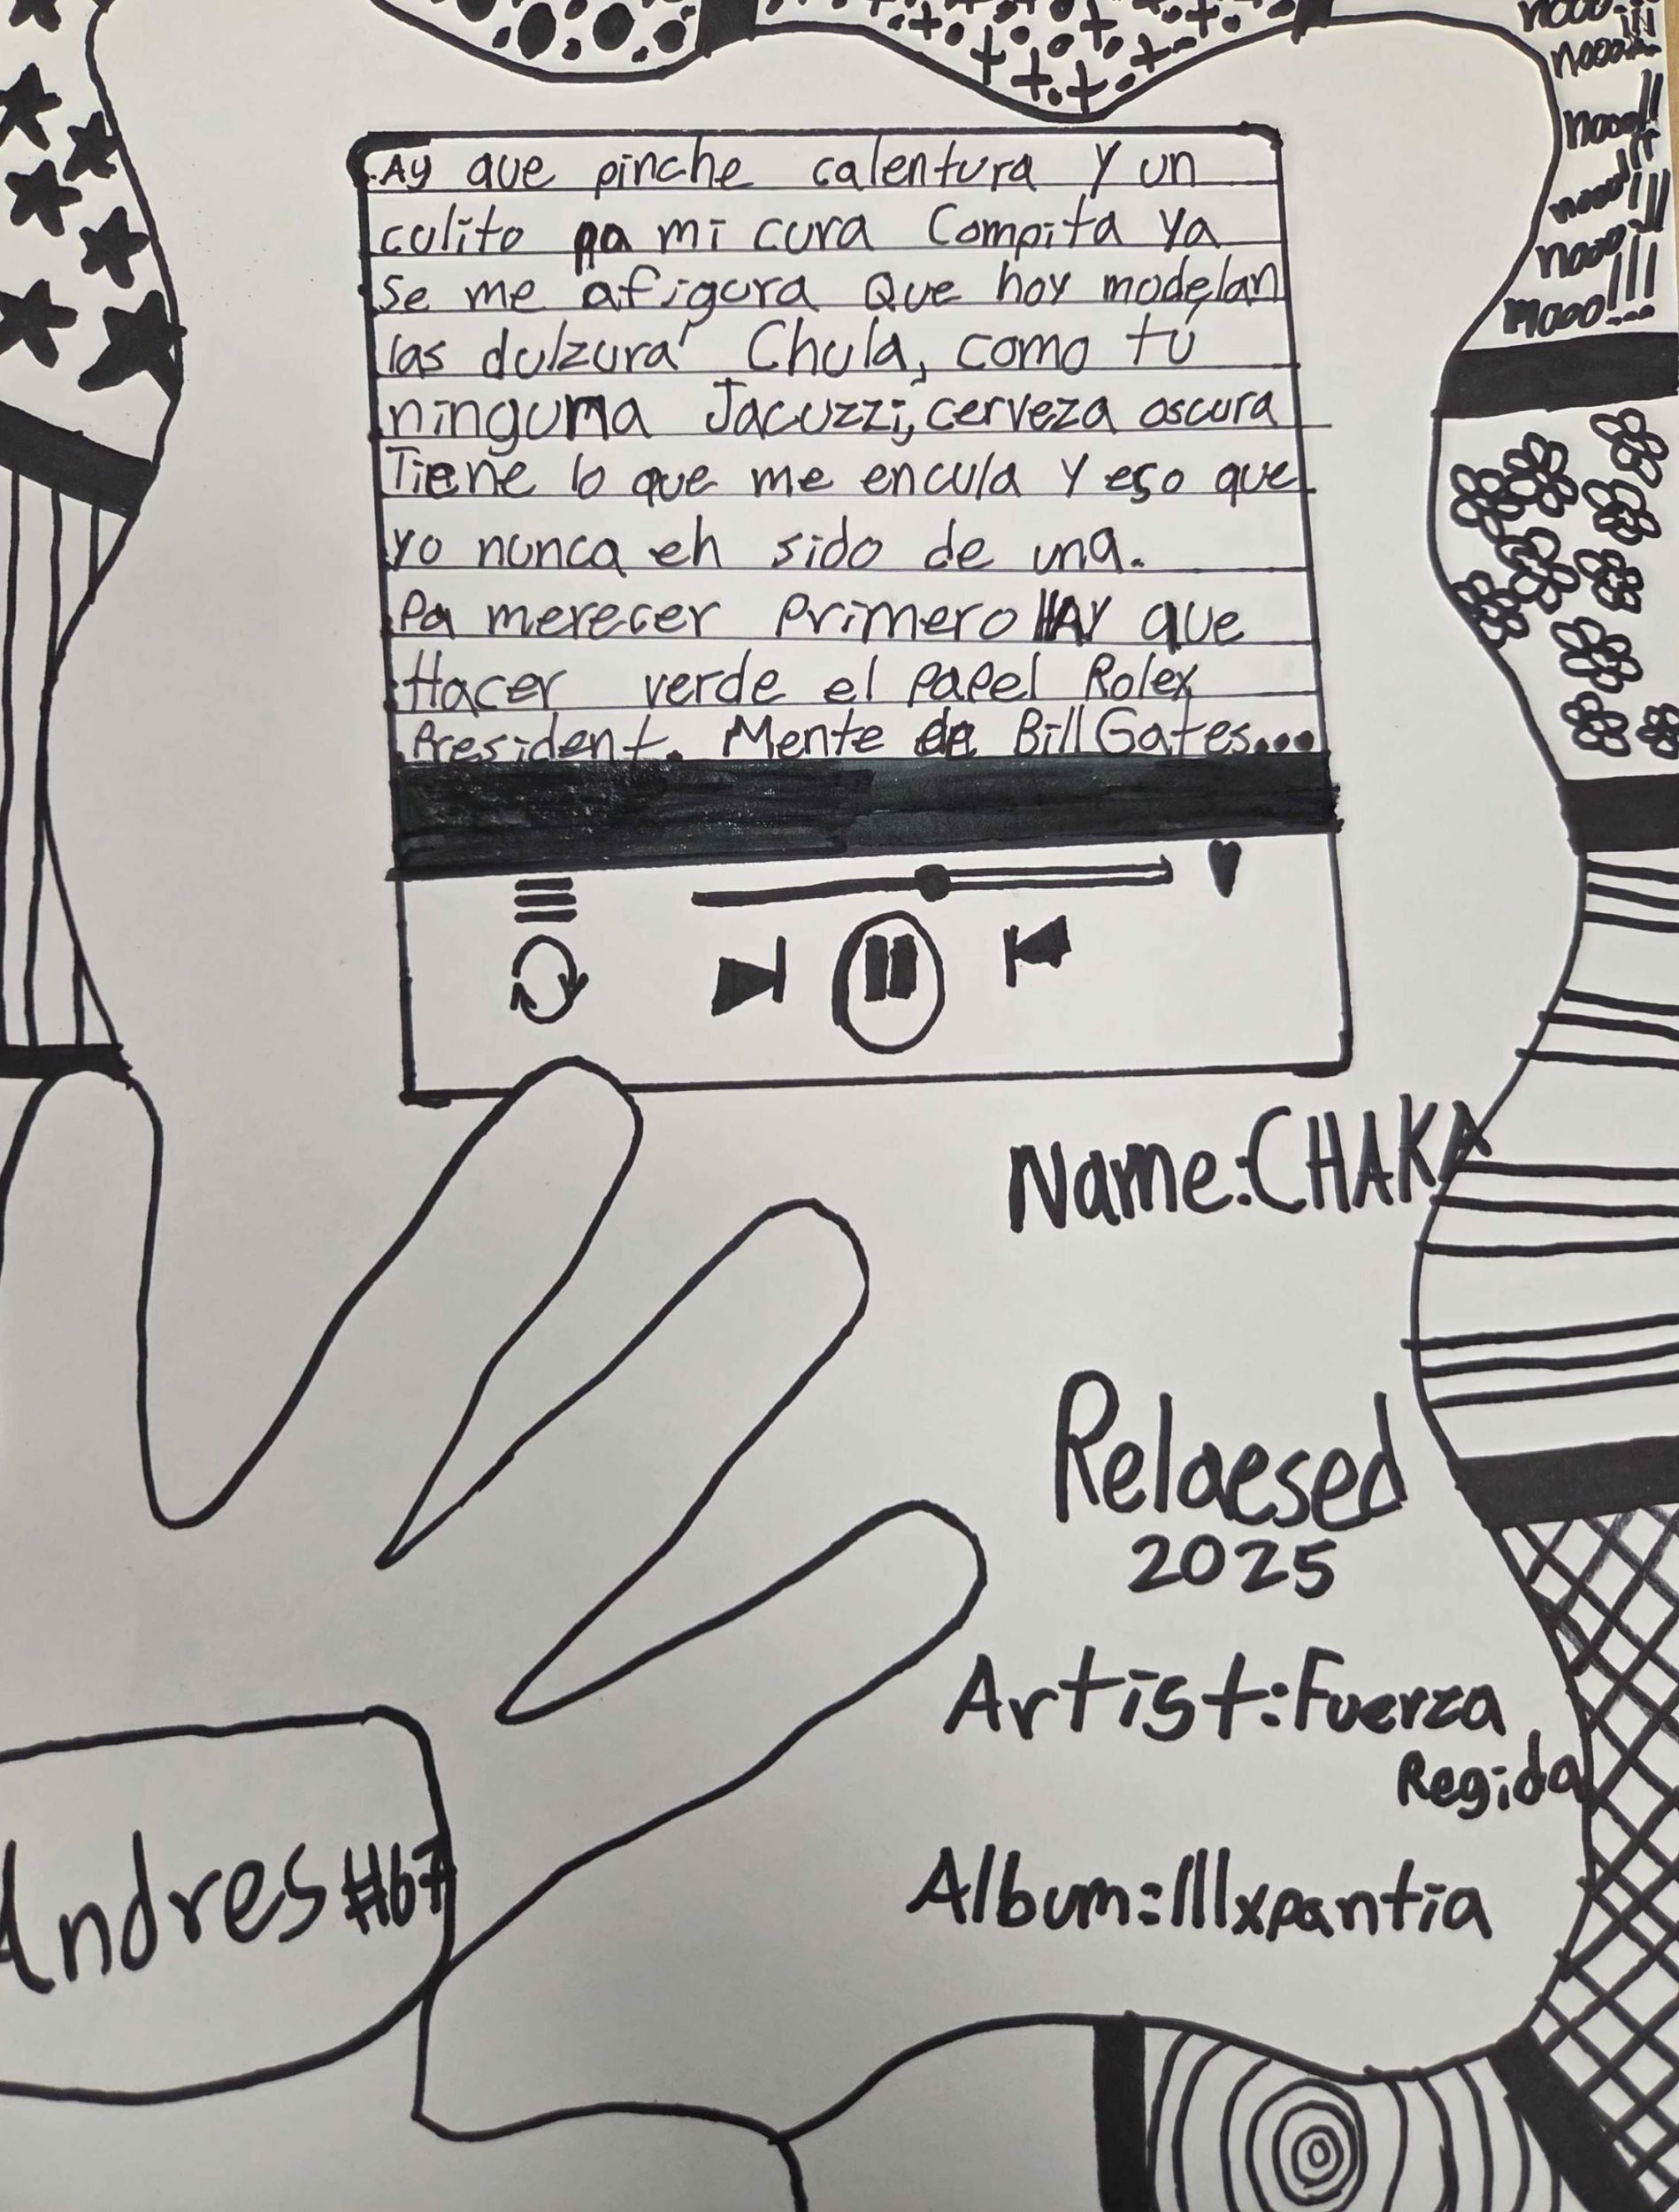 nooo!!!
nooo!!!
nooo!!
nooo!!!
nooo!!!
mooo!!!
Ay que pinche calentura y un
culito pa mi cura Compita ya
se me afigura Que hoy modelan
las dulzura' Chula, como tú
ninguma Jacuzzi, cerveza oscura
Tiene lo que me encula y eso que
yo nunca eh sido de una.
Pa merecer primero HAY que
Hacer verde el papel Rolex
President. Mente de Bill Gates...
Name: CHAKA
Relaesed
2025
Artist: Fuerza
Regida
Album: 111xpantia
Andres #67